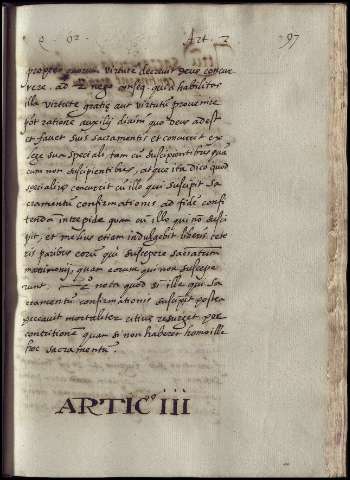 Art. 3 97
propter quorum virtute decrevit deus concur
rere. ad 2 nego conseq. quia habilitas
illa virtute gratię aut virtuti proveniente
pōt ratione auxilij divini quo deus adest
et favet suis sacramentis et concurrit ex
lege sua speciali tam cū suscipientibus quā
cum non suscipientibus, atque ita dico quod
specialius concurrit cū illo qui suscipit sa
cramentū confirmationis ad fidē confi
tendā intrepide quam cū illo qui nō susci
pit, et melius etiam indulgebit liberis cete
ris paribus eorū qui suscepere sacramtum
matrimonij, quam eorum qui non suscepe
runt. 2 nota quod si ille qui sa
cramentū confirmationis suscipit postea
peccavit mortaliter citius resurget per
contritionē quam si non haberet homo ille
hoc sacramentū.
ARTICᵒ III